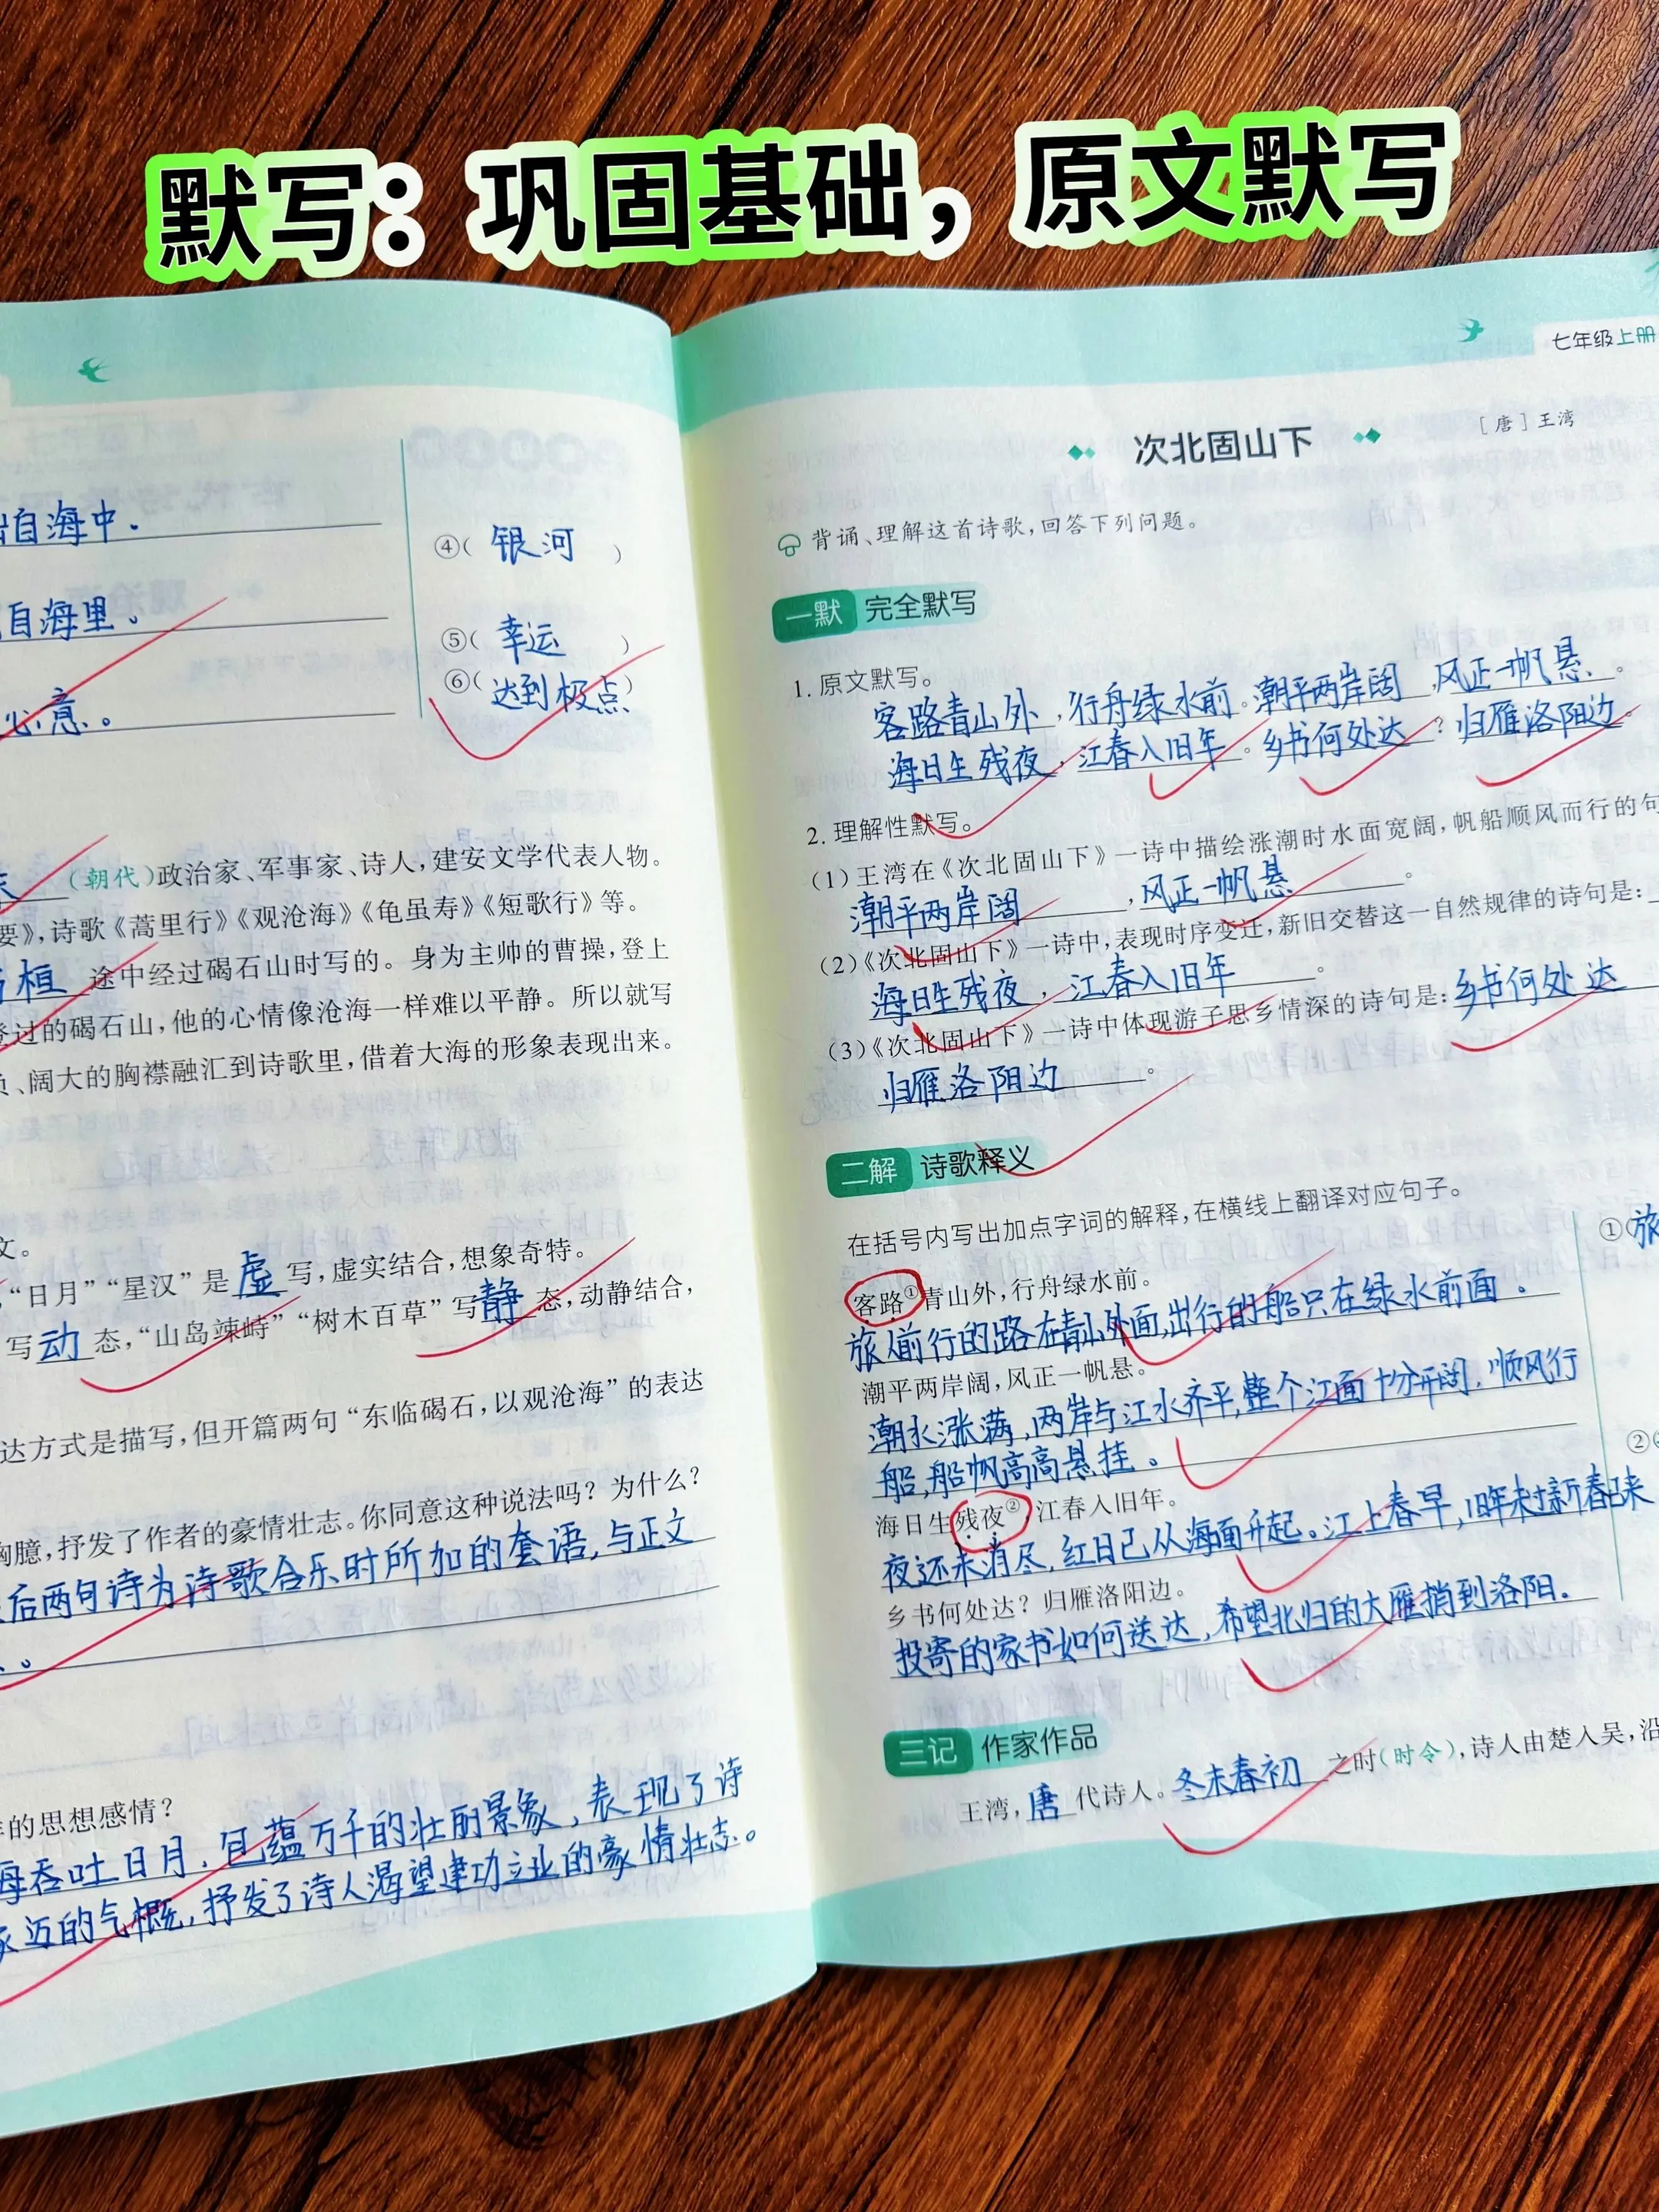 默写：巩固基础，原文默写
自海中.
④( 银河 )
自海里。
⑤( 幸运 )
意。
⑥( 达到极点)
(朝代)政治家、军事家、诗人，建安文学代表人物。
要》，诗歌《蒿里行》《观沧海》《龟虽寿》《短歌行》等。
桓 途中经过碣石山时写的。身为主帅的曹操，登上
登过的碣石山，他的心情像沧海一样难以平静。所以就写
、阔大的胸襟融汇到诗歌里，借着大海的形象表现出来。
文。
“日月”“星汉”是虚写，虚实结合，想象奇特。
写动态，“山岛竦峙”“树木百草”写静态，动静结合，
达方式是描写，但开篇两句“东临碣石，以观沧海”的表达
胸臆，抒发了作者的豪情壮志。你同意这种说法吗？为什么？
后两句诗为诗歌合乐时所加的套语，与正文
。
的思想感情？
海吞吐日月，包蕴万千的壮丽景象，表现了诗
迈的气概，抒发了诗人渴望建功立业的豪情壮志。
七年级上册
次北固山下
［唐］王湾
背诵、理解这首诗歌，回答下列问题。
一默 完全默写
1. 原文默写。
客路青山外，行舟绿水前。潮平两岸阔，风正一帆悬。
海日生残夜，江春入旧年。乡书何处达？归雁洛阳边。
2. 理解性默写。
(1)王湾在《次北固山下》一诗中描绘涨潮时水面宽阔，帆船顺风而行的句
潮平两岸阔，风正一帆悬。
(2)《次北固山下》一诗中，表现时序变迁，新旧交替这一自然规律的诗句是：
海日生残夜，江春入旧年。
(3)《次北固山下》一诗中体现游子思乡情深的诗句是：乡书何处达
归雁洛阳边。
二解 诗歌释义
在括号内写出加点字词的解释，在横线上翻译对应句子。
客路①青山外，行舟绿水前。
①(旅
旅人前行的路在青山外面，出行的船只在绿水前面.
潮平两岸阔，风正一帆悬。
潮水涨满，两岸与江水齐平，整个江面十分开阔，顺风行
船，船帆高高悬挂。
②(
海日生残夜②，江春入旧年。
夜还未消尽，红日已从海面升起。江上春早，旧年未过新春已来
乡书何处达？归雁洛阳边。
投寄的家书如何送达，希望北归的大雁捎到洛阳.
三记 作家作品
王湾，唐代诗人。冬末春初之时(时令)，诗人由楚入吴，沿